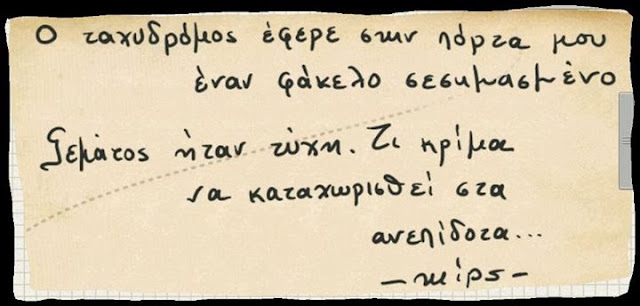 Ο ταχυδρόμος έφερε στην πόρτα μου
έναν φάκελο σεσημασμένο
Γεμάτος ήταν τύχη. Τι κρίμα
να καταχωρισθεί στα
ανεπίδοτα...